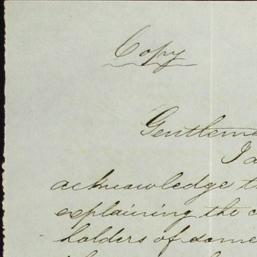 Copy
Gentleme
I a
acknowledge th
explaining the c
holders of some